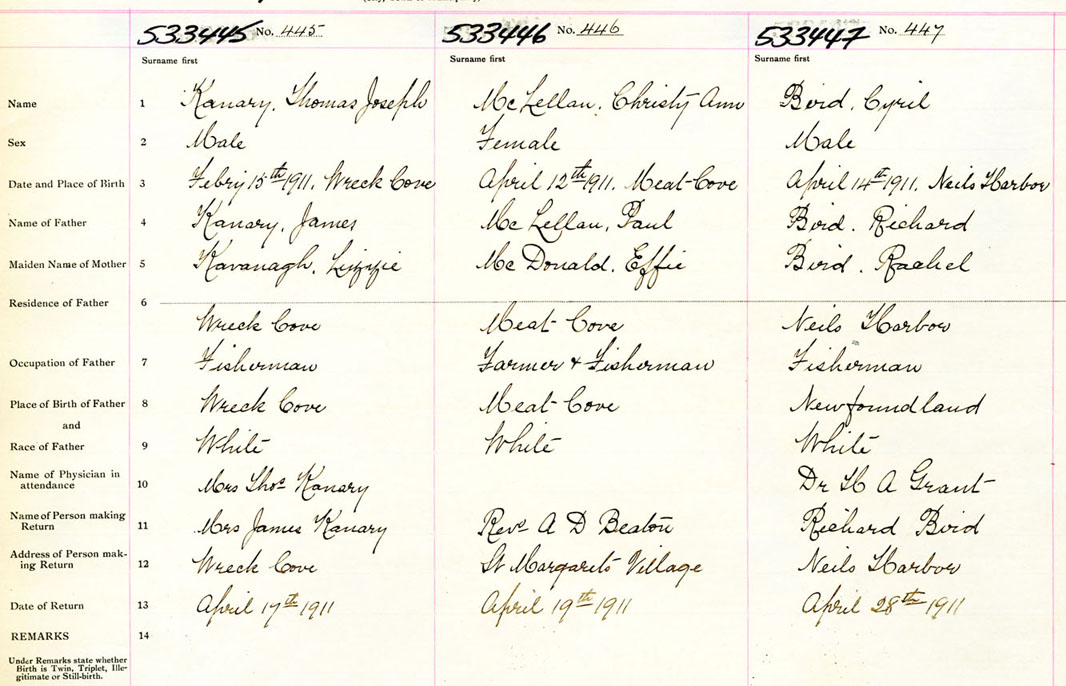 533445 No. 445 533446 No. 446 533447 No. 447
Surname first Surname first Surname first
Name 1 Kanary, Thomas Joseph Mc Lellan, Christy Ann Bird, Cyril
Sex 2 Male Female Male
Date and Place of Birth 3 Febry 15th 1911, Wreck Cove April 12th 1911, Meat-Cove April 14th 1911, Neils Harbor
Name of Father 4 Kanary, James Mc Lellan, Paul Bird, Richard
Maiden Name of Mother 5 Kavanagh, Lizzie Mc Donald, Effie Bird, Rachel
Residence of Father 6
Wreck Cove Meat Cove Neils Harbor
Occupation of Father 7 Fisherman Farmer & Fisherman Fisherman
Place of Birth of Father 8 Wreck Cove Meat Cove Newfoundland
and
Race of Father 9 White White White
Name of Physician in
attendance 10 Mrs Thos Kanary Dr H A Grant
Name of Person making
Return 11 Mrs James Kanary Revd A D Beaton Richard Bird
Address of Person mak-
ing Return 12 Wreck Cove St Margarets Village Neils Harbor
Date of Return 13 April 17th 1911 April 19th 1911 April 28th 1911
REMARKS 14
Under Remarks state whether
Birth is Twin, Triplet, Ille-
gitimate or Still-birth.